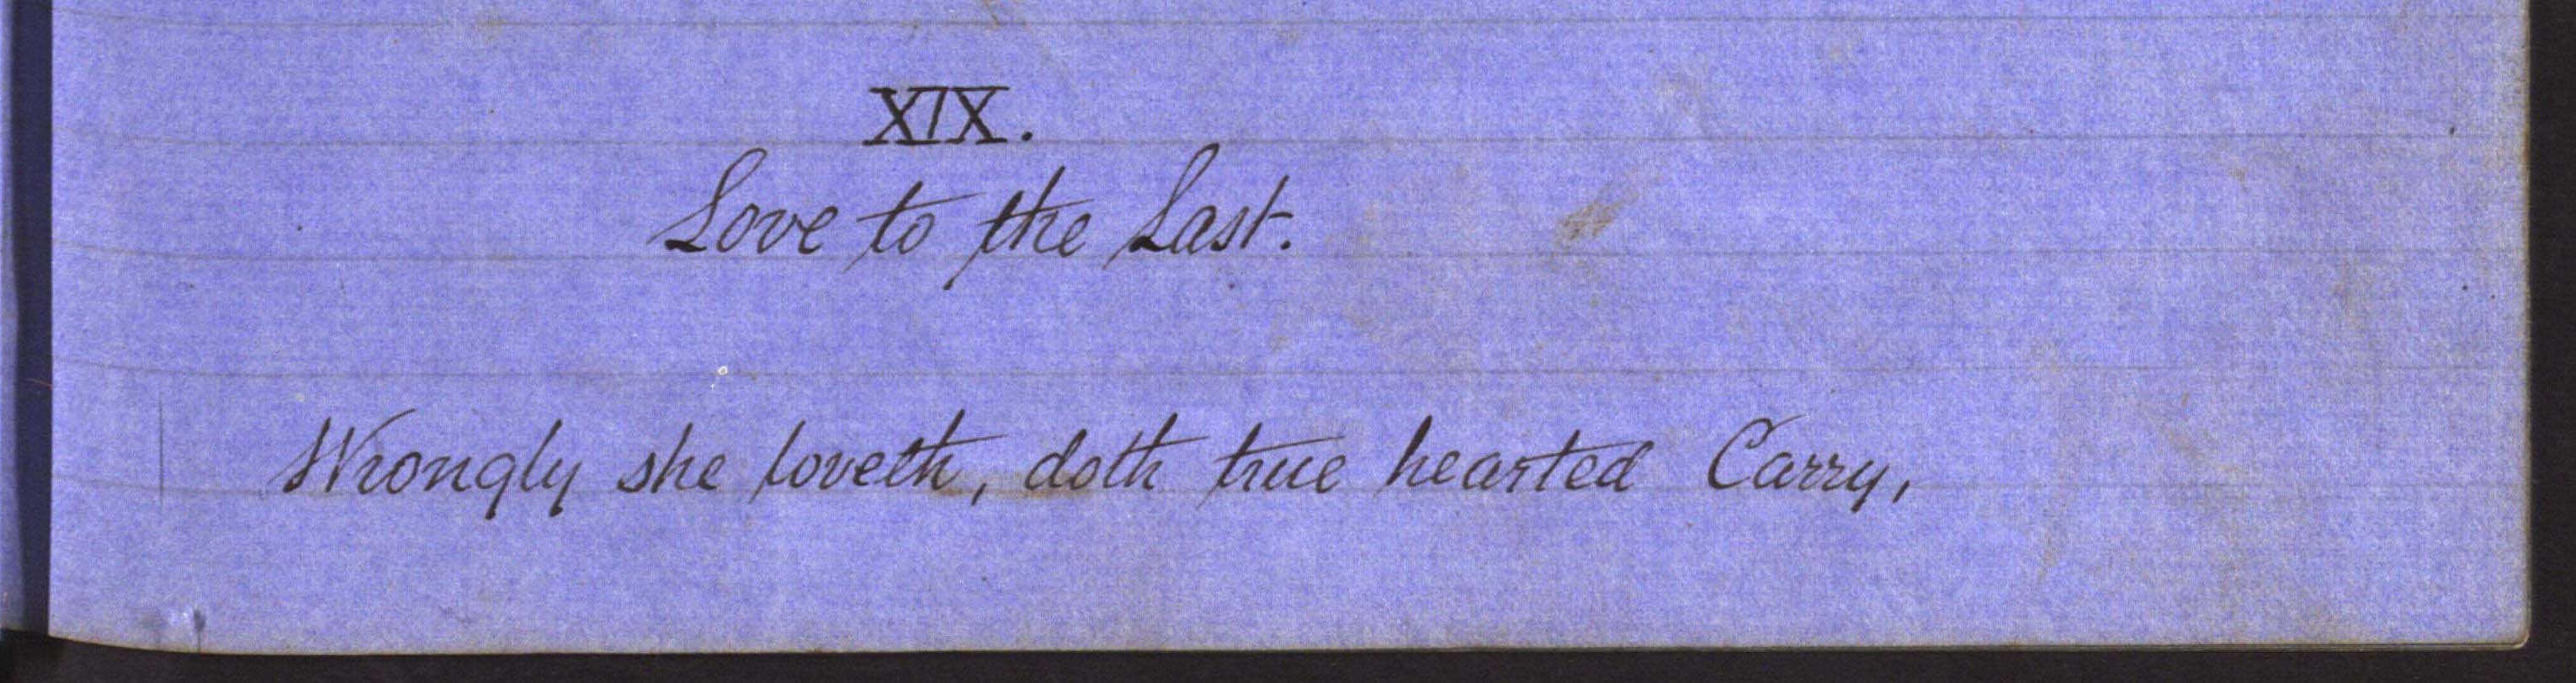 XIX.
Love to the Last.
Wrongly she loveth, doth true hearted Carry,